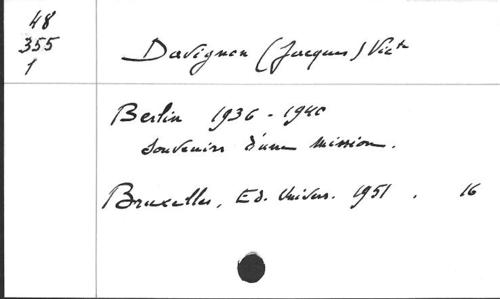 48
355
1
Davignon (Jacques) Victe
Berlin 1936 - 1940
Souvenirs d'une mission.
Bruxelles, Ed. Univers. 1951. 16